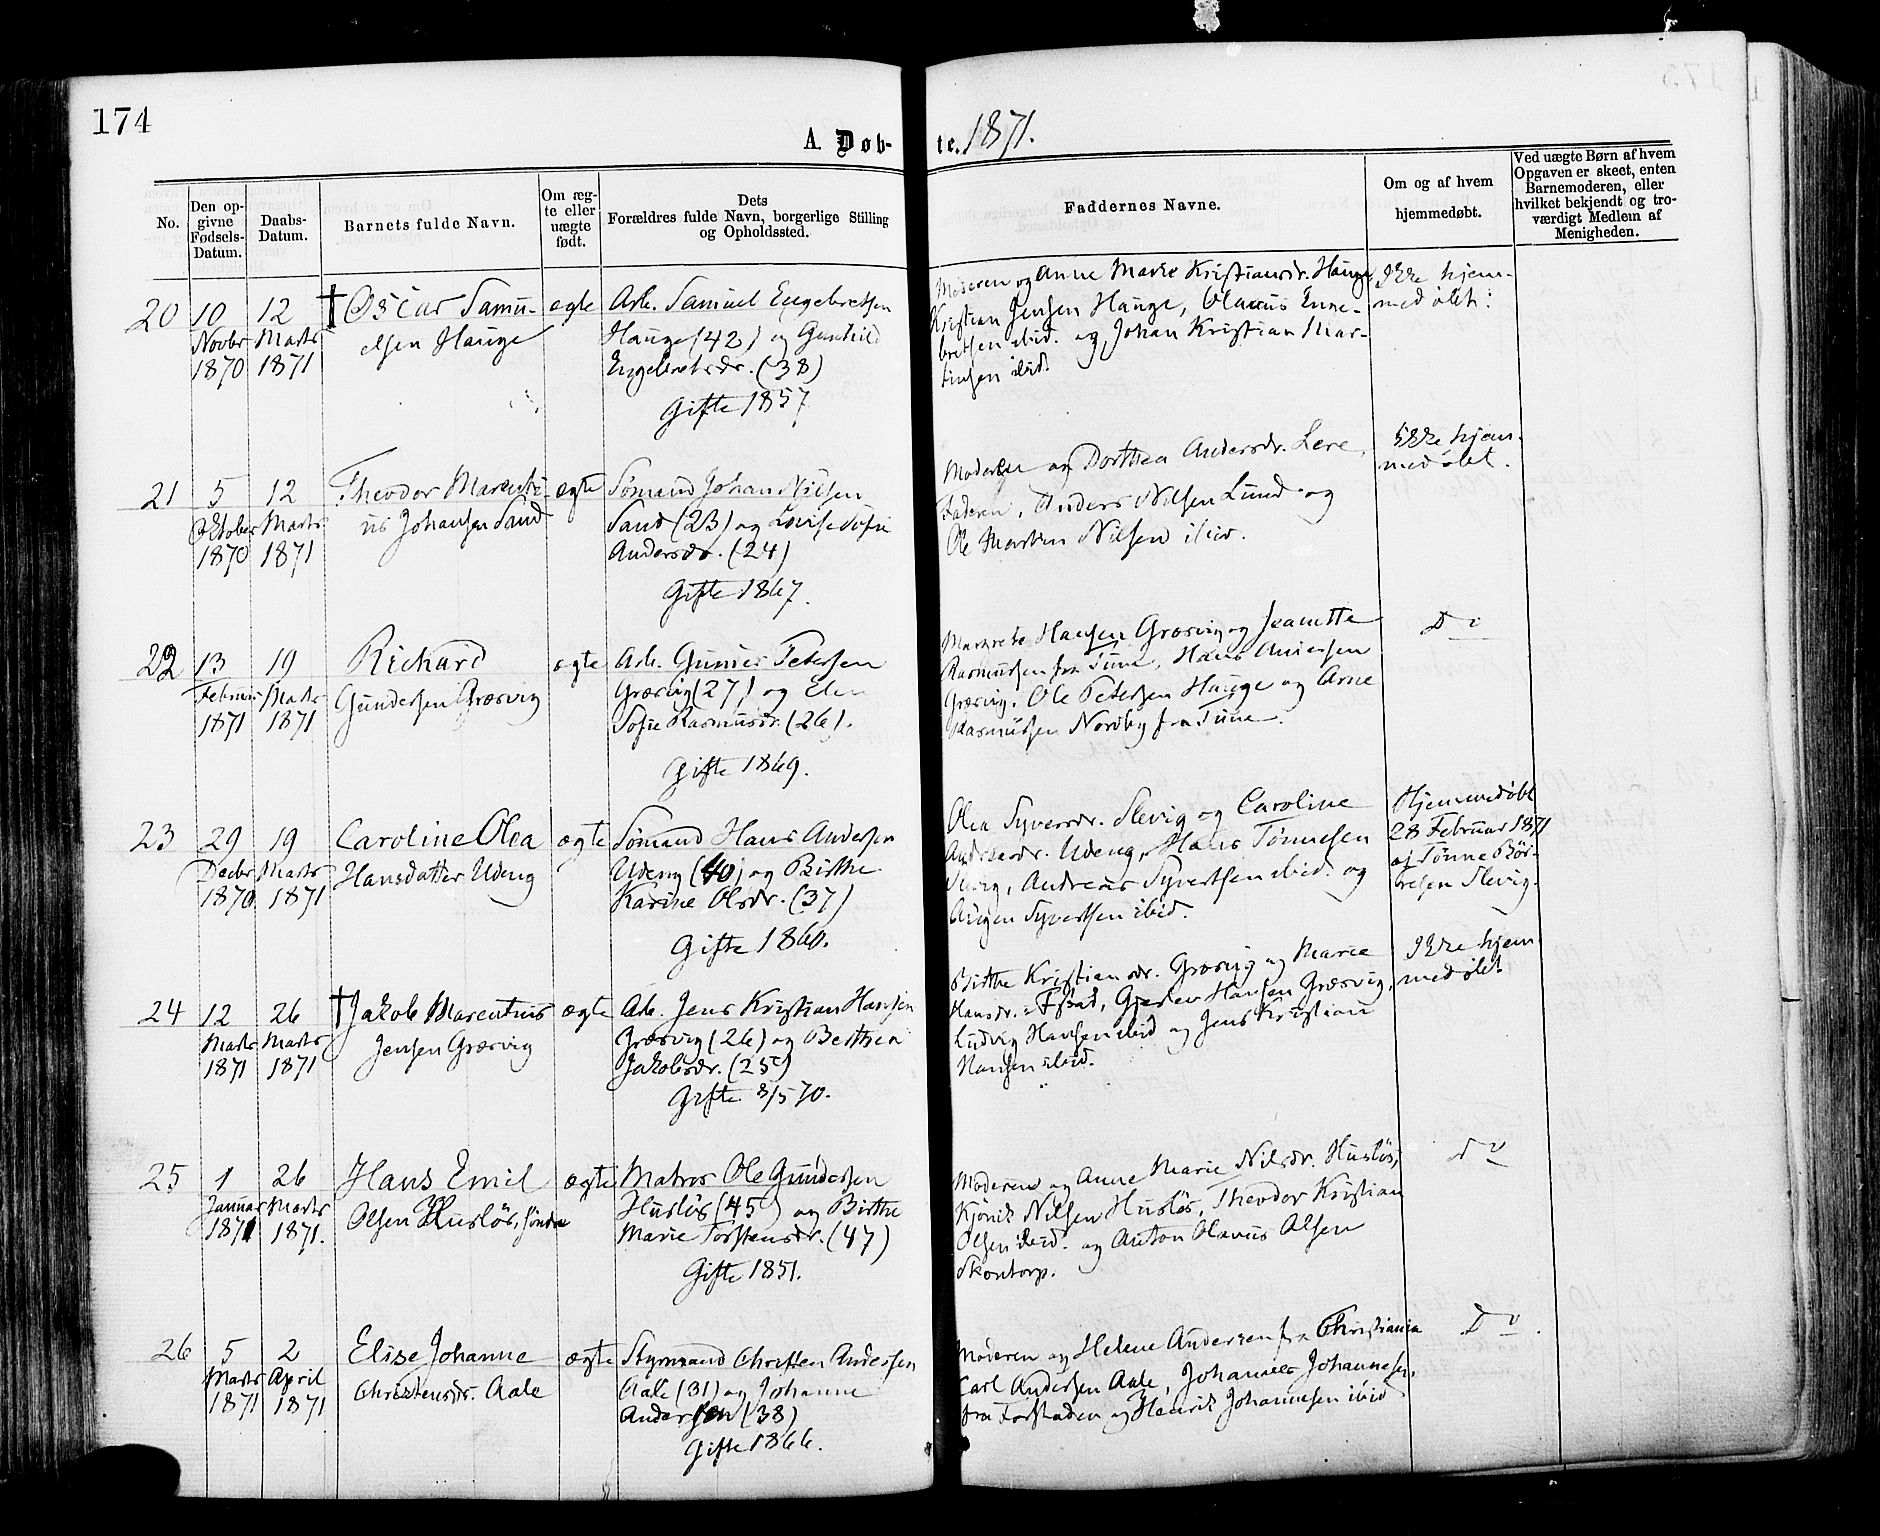 174
A. Døb-
te. 1871.
No.
Den op-
givne
Fødsels-
Datum.
Daabs-
Datum.
Barnets fulde Navn.
Om æg-
te eller
uægte
født.
Dets
Forældres fulde Navn, borgerlige Stilling
og Opholdssted.
Faddernes Navne.
Om og af hvem
hjemmedøbt.
Ved uægte Børn af hvem
Opgaven er skeet, enten
Barnemoderen, eller
hvilket bekjendt og tro-
værdigt Medlem af
Menigheden.
20
10
Novbr
1870
12
Marts
1871
† Oscar Samu-
elsen Hauge
ægte
Arb. Samuel Engebretsen
Hauge (42) og Gunhild
Engebretsdr. (38)
Gifte 1857
Moderen og Anne Marie Kristiansdr. Hauge
Kristian Jensen Hauge, Olaus Enge-
bretsen ibid. og Johan Kristian Mar-
tinsen ibid.
Ikke hjem-
medøbt.
21
5
Oktober
1870
12
Marts
1871
Theodor Marenti-
us Johansen Sand
ægte
Sømand Johan Nilsen
Sand (23) og Lovise Sofie
Andersdr. (24)
Gifte 1867.
Moderen og Dorthea Andersdr. Lere,
Faderen, Anders Nilsen Lund og
Ole Martin Nilsen ibid.
Ikke hjem-
medøbt.
22
13
Februar
1871
19
Marts
1871
Richard
Gundersen Græsvig
ægte
Arb. Gunder Petersen
Græsvig (27) og Elen
Sofie Rasmusdr. (26).
Gifte 1869.
Margrete Hansen Græsvig og Jeanette
Rasmussen fra Tune, Hans Andersen
Græsvig, Ole Petersen Hauge og Arne
Rasmussen Nordby fra Tune.
Do
23
29
Decbr
1870
19
Marts
1871
Caroline Olea
Hansdatter Udeng
ægte
Sømand Hans Andersen
Udeng (40) og Birthe
Karine Olsdr. (37)
Gifte 1860.
Olea Syversdr. Slevig og Caroline
Andreasdr. Udeng, Hans Tønnesen
Slevig, Andreas Syvertsen ibid. og
Syvertsen ibid.
Hjemmedøbt
28 Februar 1871
af Tønne Bør-
resen Slevig.
24
12
Marts
1871
26
Marts
1871
† Jakob Marentius
Jensen Græsvig
ægte
Arb. Jens Kristian Hansen
Græsvig (26) og Berthea
Jakobsdr. (25)
Gifte 8/5 70.
Birthe Kristiansdr. Græsvig og Marie
Hansdr. Gjerlev Hansen Græsvig,
Ludvig Hansen ibid og Jens Kristian
Hansen ibid.
Ikke hjem-
medøbt
25
1
Januar
1871
26
Marts
1871.
Hans Emil
Olsen Husløs, søndre
ægte
Matros Ole Gundersen
Husløs (45) og Birthe
Marie Torstensdr. (47)
Gifte 1851.
Moderen og Anne Marie Nilsdr. Husløs,
Kjønik Nilsen Husløs, Theodor Kristian
Olsen ibid. og Anton Olavus Olsen
Skontorp.
Do
26
5
Marts
1871
2
April
1871
Elise Johanne
Christensdr. Aale
ægte
Styrmand Christen Andersen
Aale (31) og Johanne
Andersen (38)
Gifte 1866.
Moderen og Helene Andersen fra Christiania
Carl Andersen Aale, Johannes Johannesen,
fra Forstaden og Henrik Johannesen ibid
Do.